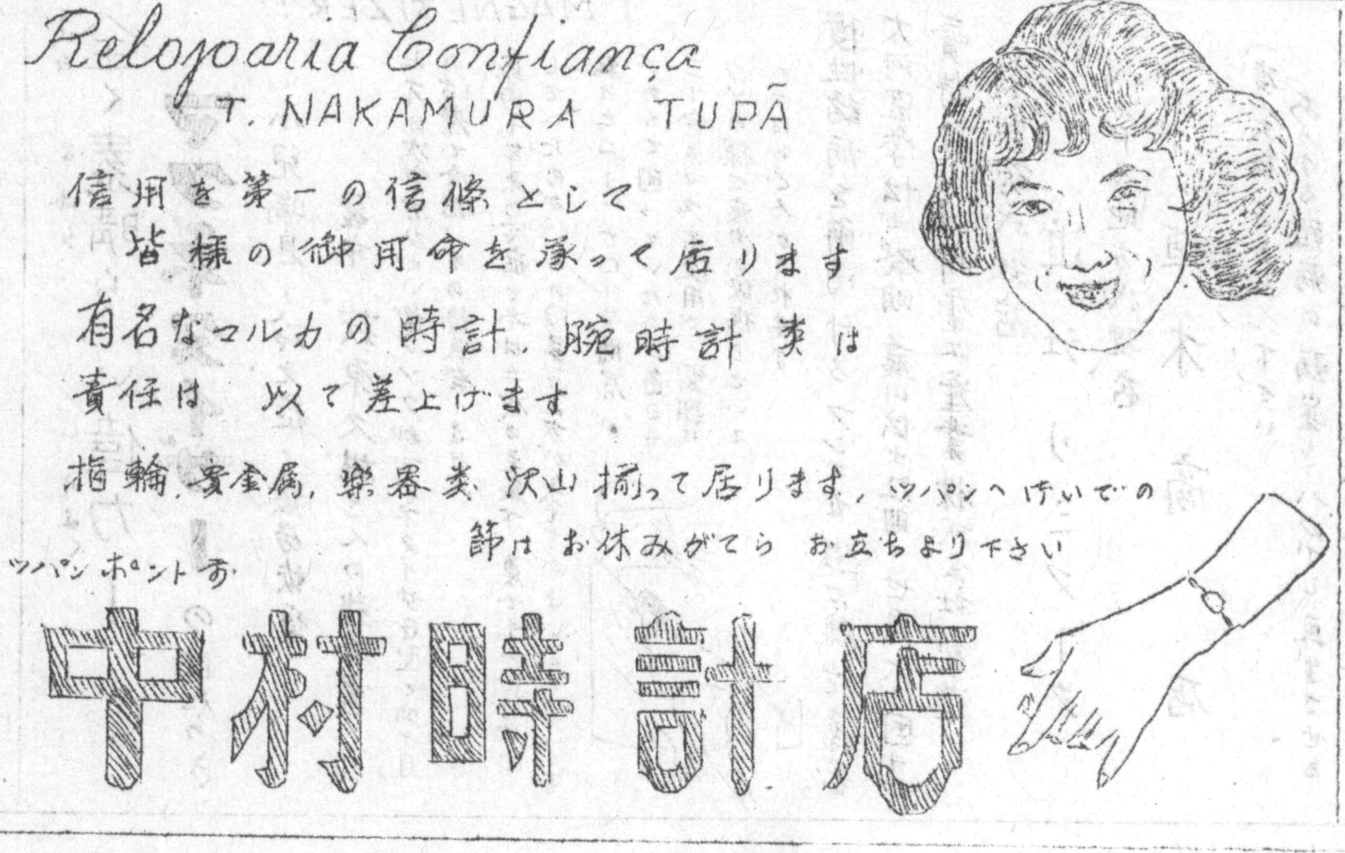 Relojoaria Confiança
T. NAKAMURA TUPÃ
信用を第一の信條として
皆様の御用命を承って居ります
有名なマルカの時計、腕時計類は
責任は 以て差上げます
指輪、貴金属、楽器類 沢山揃って居ります、ツパンへ
節は お休みがてら お立ちより下さい
ツパンポント前
中村時計店